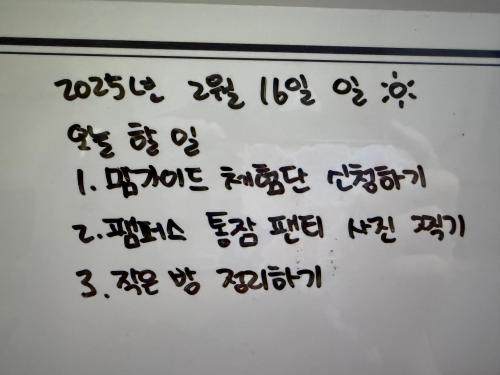 2025년 2월 16일 일
오늘 할 일
1. 맘가이드 체험단 신청하기
2. 팸퍼스 통잠 팬티 사진 찍기
3. 작은 방 정리하기